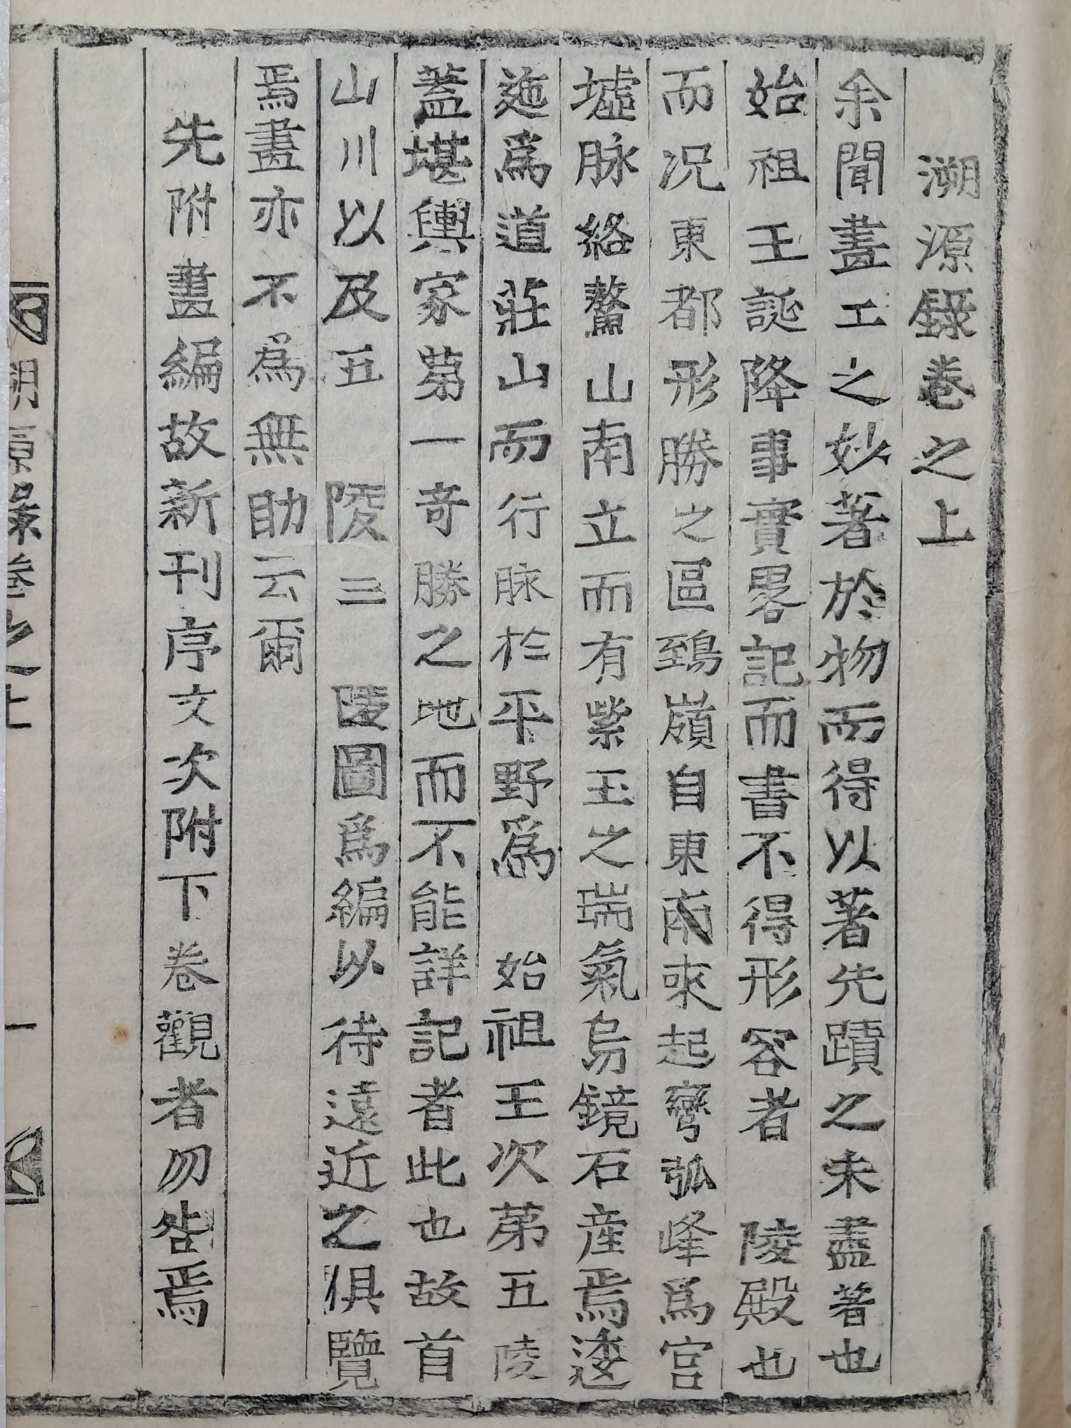 溯源錄卷之上
余聞畫工之妙著於物而得以著先蹟之未盡著也
始祖王誕降事實畧記而書不得形容者　陵殿也
而况東都形勝之區鵄嶺自東南來起彎弧峰爲宮
墟脉絡鰲山南立而有紫玉之瑞氣烏鏡石産焉逶
迤爲道莊山而行脉於平野爲　始祖王次第五陵
蓋堪輿家第一奇勝之地而不能詳記者此也故首
山川以及五　陵三　陵圖爲編以待遠近之俱覽
焉畫亦不為無助云爾
先附畫編故新刊序文次附下卷觀者勿咎焉
溯源錄卷之上
一